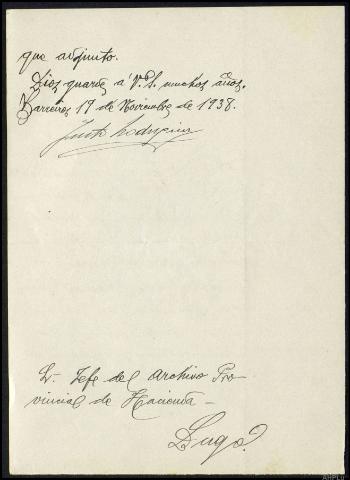 que adjunto.
Dios guarde á V.S. muchos años.
Barreiros 17 de Noviembre de 1938.
Justo Rodriguez
Sr. Jefe del Archivo Pro-
vincial de Hacienda -
Lugo.
AHPLU